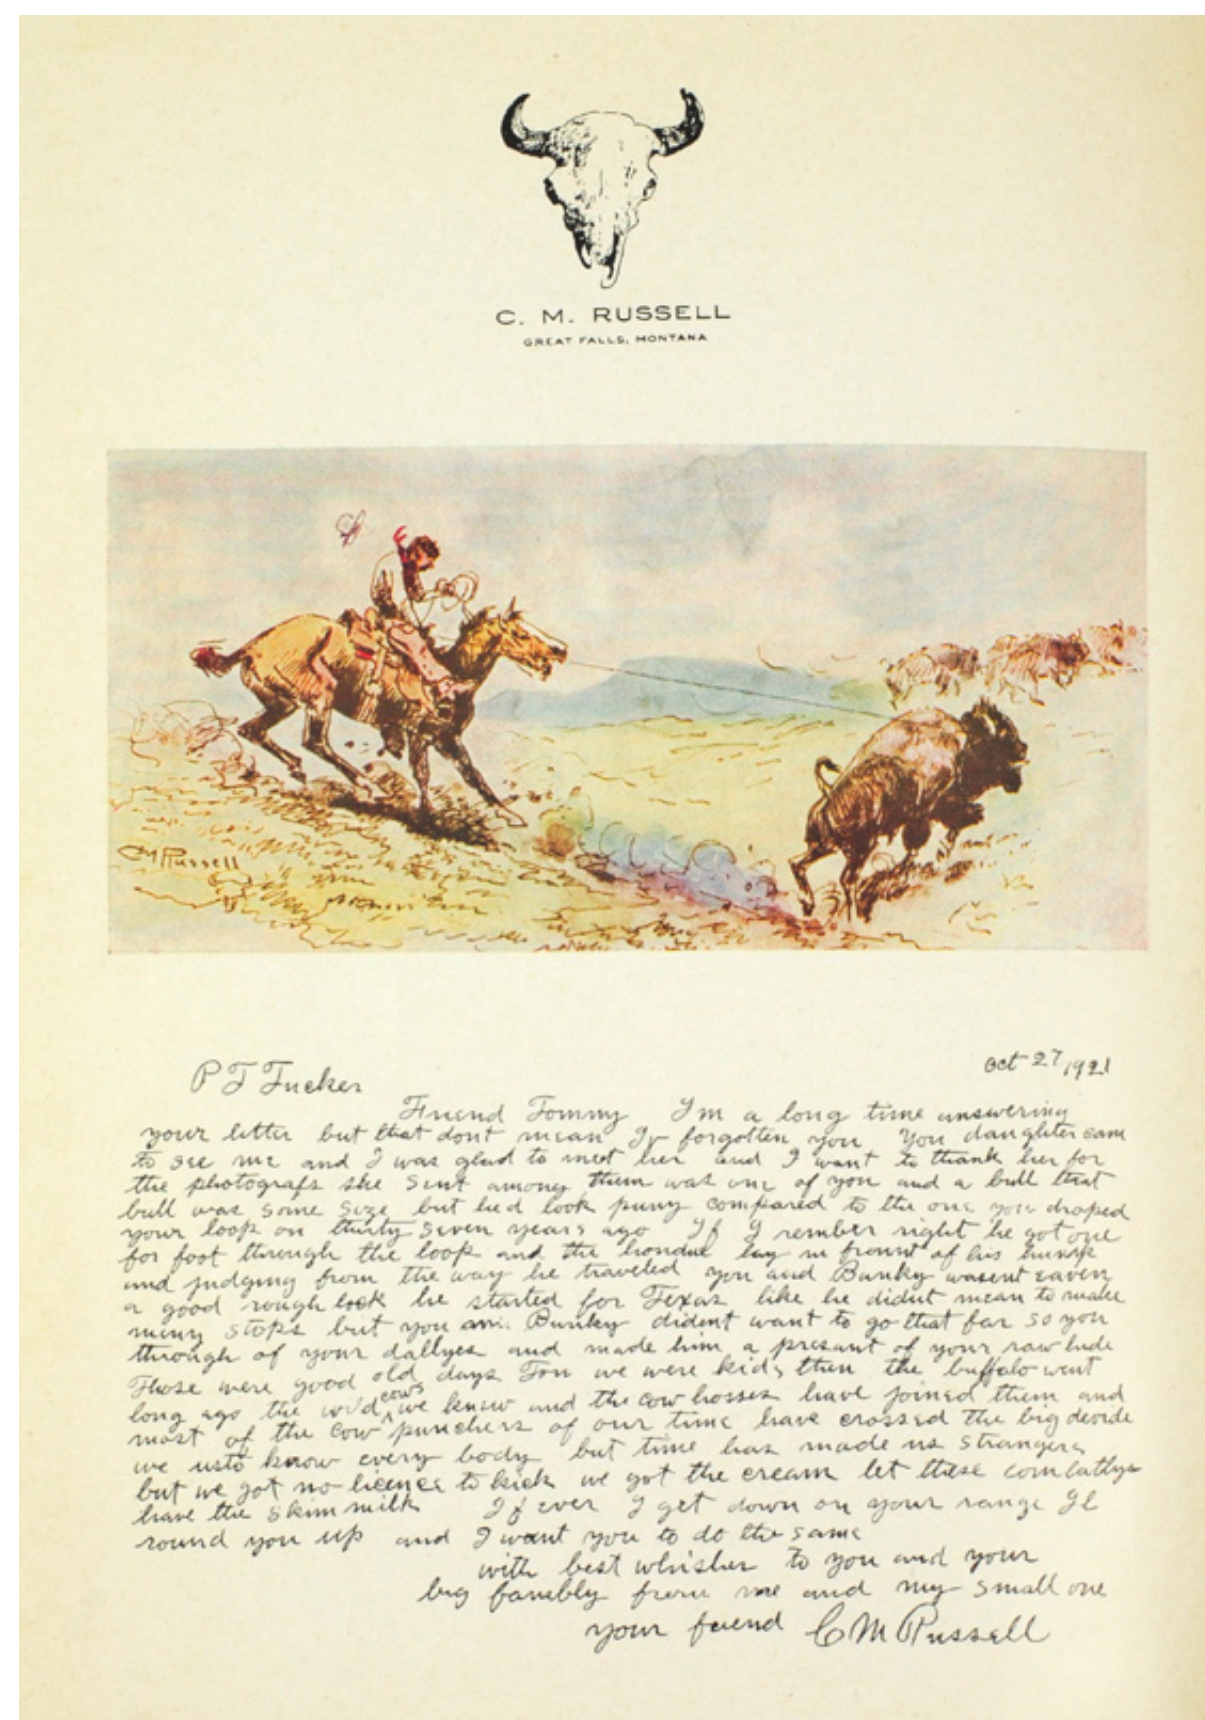 C. M. RUSSELL
GREAT FALLS, MONTANA
CM Russell
oct 27 1921
P T Tucker
Friend Tommy I'm a long time answering
your letter but that dont mean Iv forgotten you You daughter cam
to see me and I was glad to meet her and I want to thank her for
the photografs she sent among them was one of you and a bull that
bull was some size but hed look puny compared to the one you draped
your loop on thirty seven years ago If I rember right he got one
for foot through the loop and the hondue lay in frount of his hump
and judging from the way he traveled you and Bunky wasent eaven
a good rough lock he started for Texas like he didnt mean to make
many stops but you an Bunky dident want to go that far so you
through of your dallyes and made him a present of your raw hide
Those were good old days Tom we were kids then the buffalo went
long ago the wild cows we knew and the cow hosses have joined them and
most of the cow punchers of our time have crossed the big devide
we usto know every body but time has made us strangers
but we got no licence to kick we got the cream let these come latlys
have the skim milk If ever I get down on your range Il
round you up and I want you to do the same
with best whishes to you and your
big fambly from me and my small one
your friend C M Russell